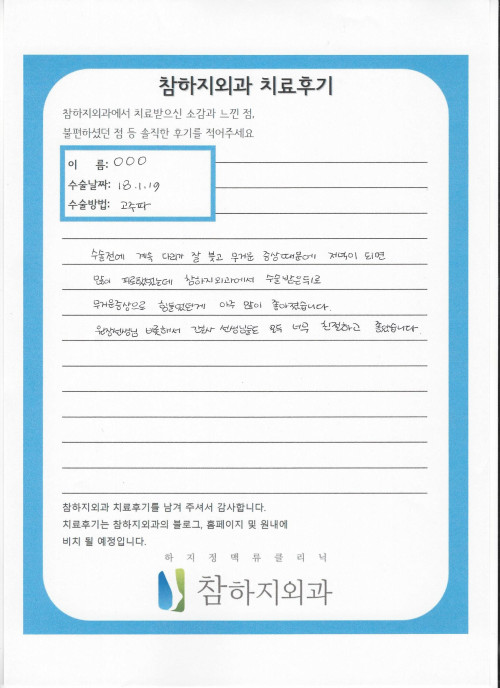 참하지외과 치료후기
참하지외과에서 치료받으신 소감과 느낀 점,
불편하셨던 점 등 솔직한 후기를 적어주세요
이 름: OOO
수술날짜: 18.1.19
수술방법: 고주파
수술전에 계속 다리가 잘 붓고 무거운 증상때문에 저녁이 되면
많이 피곤했었는데 참하지외과에서 수술받은뒤로
무거운증상으로 힘들었던게 아주 많이 좋아졌습니다.
원장선생님 비롯해서 간호사 선생님들도 모두 너무 친절하고 좋았습니다.
참하지외과 치료후기를 남겨 주셔서 감사합니다.
치료후기는 참하지외과의 블로그, 홈페이지 및 원내에
비치 될 예정입니다.
하지정맥류클리닉
참하지외과